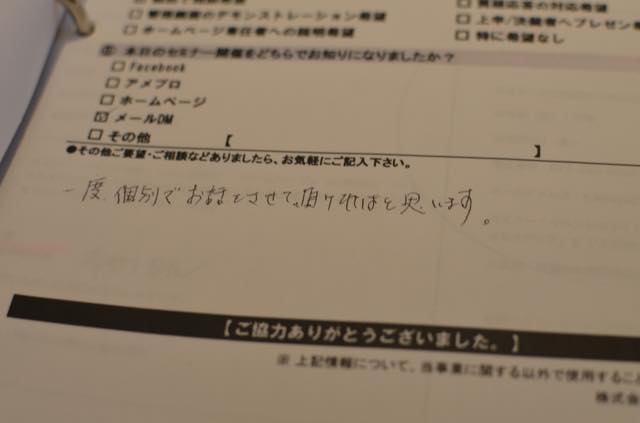 □ 管理画面のデモンストレーション希望
□ ホームページ責任者への説明希望
□ 特に希望なし
本日のセミナー開催をどちらでお知りになりましたか？
□ Facebook
□ アメブロ
□ ホームページ
☑ メールDM
□ その他 【 】
●その他ご要望・ご相談などありましたら、お気軽にご記入下さい。
一度、個別でお話をさせて頂ければと思います。
【ご協力ありがとうございました。】
※ 上記情報について、当事業に関する以外で使用すること
株式会